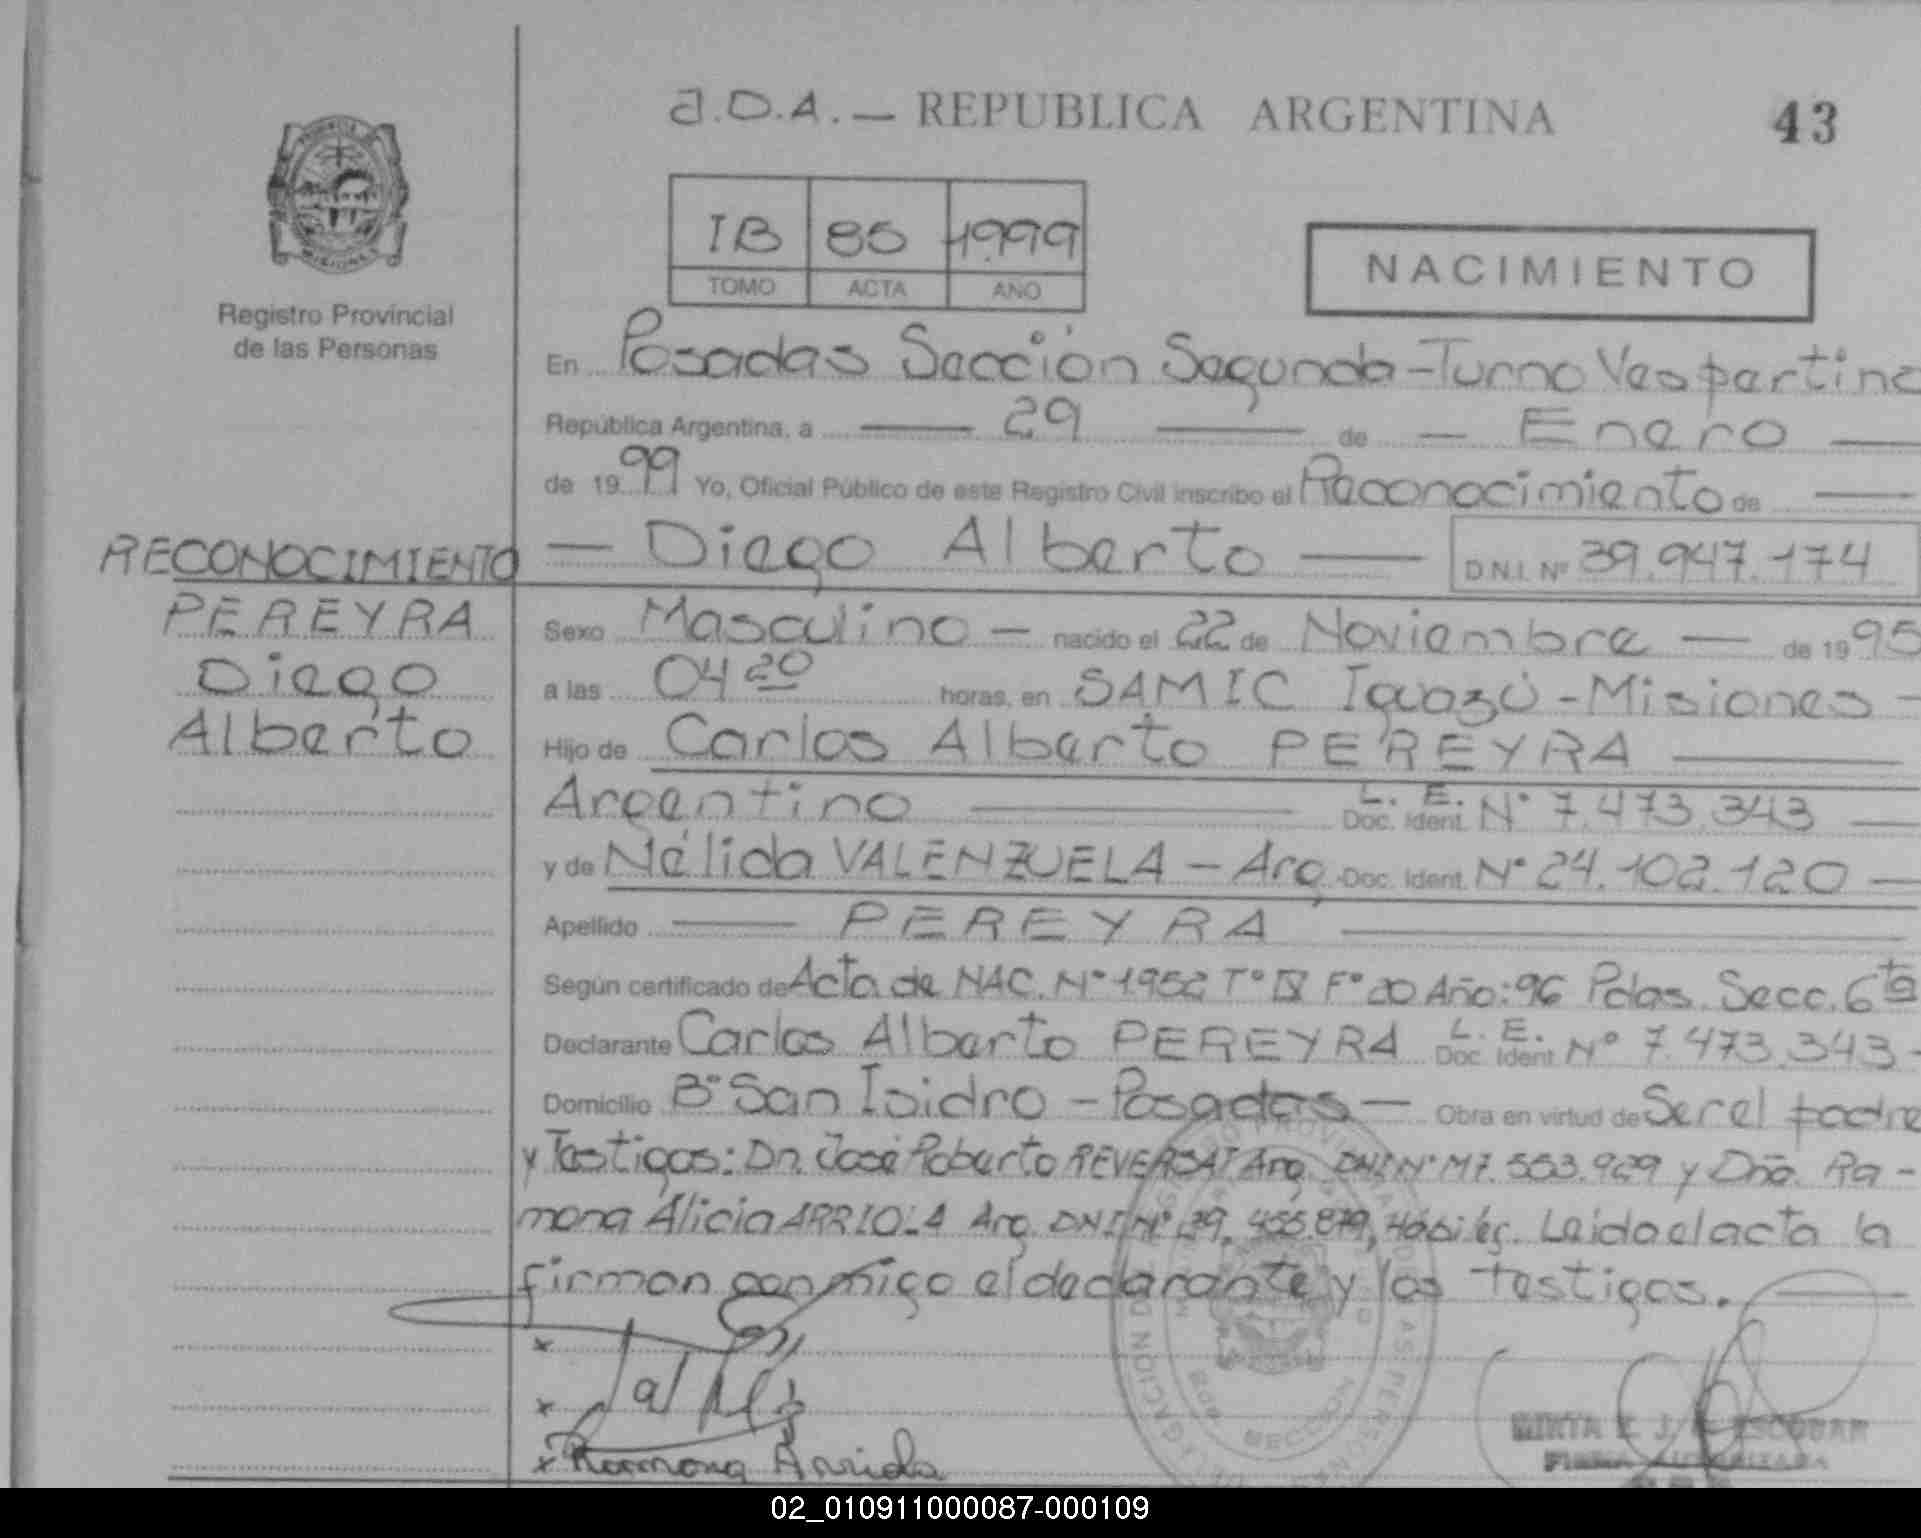 J.D.A. — REPUBLICA ARGENTINA 43
IB 85 1999
TOMO ACTA AÑO
NACIMIENTO
Registro Provincial
de las Personas
En Posadas Sección Segunda - Turno Vespertino
República Argentina, a — 29 — de — Enero —
de 1999 Yo, Oficial Público de este Registro Civil inscribo el Reconocimiento de —
— Diego Alberto — D.N.I. Nº 39.947.174
RECONOCIMIENTO
PEREYRA
Diego
Alberto
Sexo Masculino — nacido el 22 de Noviembre — de 1995
a las 04 20 horas, en SAMIC Iguazú - Misiones -
Hijo de Carlos Alberto PEREYRA —
Argentino — L. E. Doc. Ident. Nº 7.473.343 —
y de Nélida VALENZUELA — Arg. Doc. Ident. Nº 24.102.120 —
Apellido — PEREYRA —
Según certificado de Acta de NAC. Nº 1952 Tº IV Fº 20 Año: 96 Pdas. Secc. 6ta
Declarante Carlos Alberto PEREYRA L. E. Doc. Ident. Nº 7.473.343 -
Domicilio Bº San Isidro - Posadas — Obra en virtud de Ser el padre
y Testigos: Dn. José Roberto REVERSAT Arg. DNI Nº M7.553.929 y Dña. Ra-
mona Alicia ARRIOLA Arg. DNI Nº 455.879, Hábiles. Leida el acta la
firman conmigo el declarante y los testigos. —
x
x
x Ramona Arriola
ESCOBAR
FIRMA AUTORIZADA
02_010911000087-000109